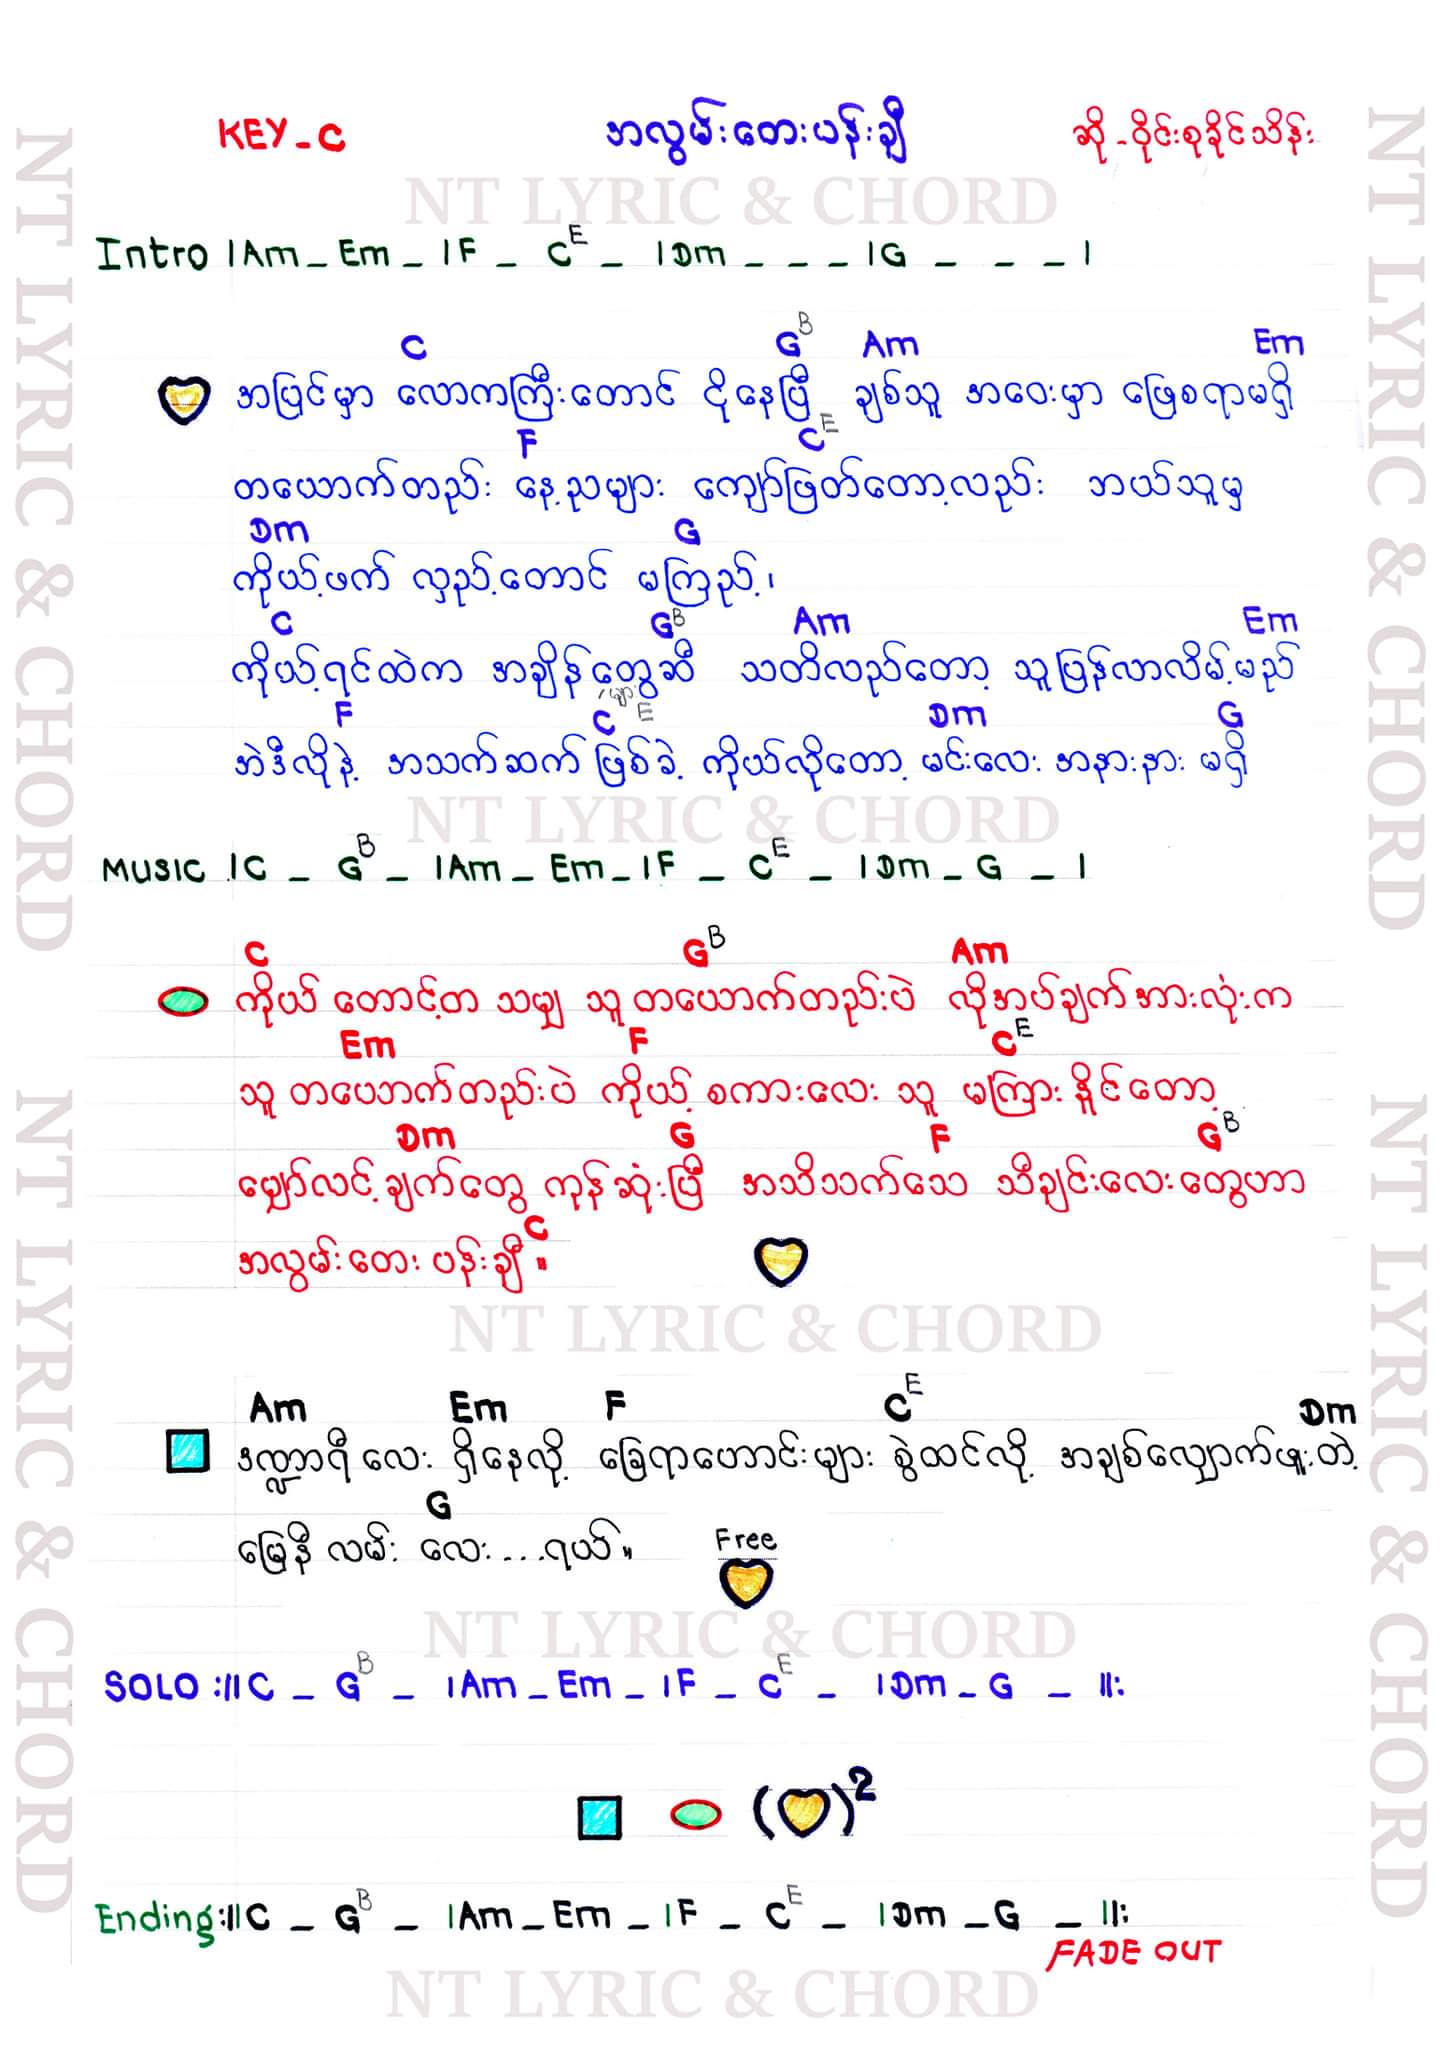 KEY_C အလွမ်းတေးပန်းချီ ဆို-ဝိုင်းစုခိုင်သိန်း
NT LYRIC & CHORD
Intro |Am _ Em _ |F _ C E _ |Dm _ _ _ |G _ _ _ |
C G B Am Em
အပြင်မှာ လောကကြီးတောင် ငိုနေပြီ ချစ်သူ အဝေးမှာ ဖြေစရာမရှိ
F C E
တယောက်တည်း နေ့ညများ ကျော်ဖြတ်တော့လည်း ဘယ်သူမှ
Dm G
ကိုယ့်ဖက် လှည့်တောင် မကြည့်၊
C G B Am Em
ကိုယ့်ရင်ထဲက အချိန်တွေဆီ သတိလည်တော့ သူပြန်လာလိမ့်မည်
များ
F C E Dm G
အဲဒီလိုနဲ့ အသက်ဆက်ဖြစ်ခဲ့ ကိုယ်လိုတော့ မင်းလေး အနားနား မရှိ
NT LYRIC & CHORD
MUSIC |C _ G B _ |Am _ Em _ |F _ C E _ |Dm _ G _ |
C G B Am
ကိုယ် တောင့်တ သမျှ သူ တယောက်တည်းပဲ လိုအပ်ချက်အားလုံးက
Em F C E
သူ တယောက်တည်းပဲ ကိုယ့် စကားလေး သူ မကြားနိူင်တော့
Dm G F G B
မျှော်လင့်ချက်တွေ ကုန်ဆုံးပြီ အသိသက်သေ သီချင်းလေးတွေဟာ
C
အလွမ်းတေး ပန်းချီ။
NT LYRIC & CHORD
Am Em F C E Dm
ဒဏ္ဍာရီလေး ရှိနေလို့ ခြေရာဟောင်းများ စွဲထင်လို့ အချစ်လျှောက်ဖူးတဲ့
G
မြေနီလမ်း လေး....ရယ်။ Free
NT LYRIC & CHORD
SOLO :||C _ G B _ |Am _ Em _ |F _ C E _ |Dm _ G _ ||:
( )2
Ending:||C _ G B _ |Am _ Em _ |F _ C E _ |Dm _ G _ ||:
FADE OUT
NT LYRIC & CHORD
NT LYRIC & CHORD
NT LYRIC & CHORD
NT LYRIC & CHORD
NT LYRIC & CHORD